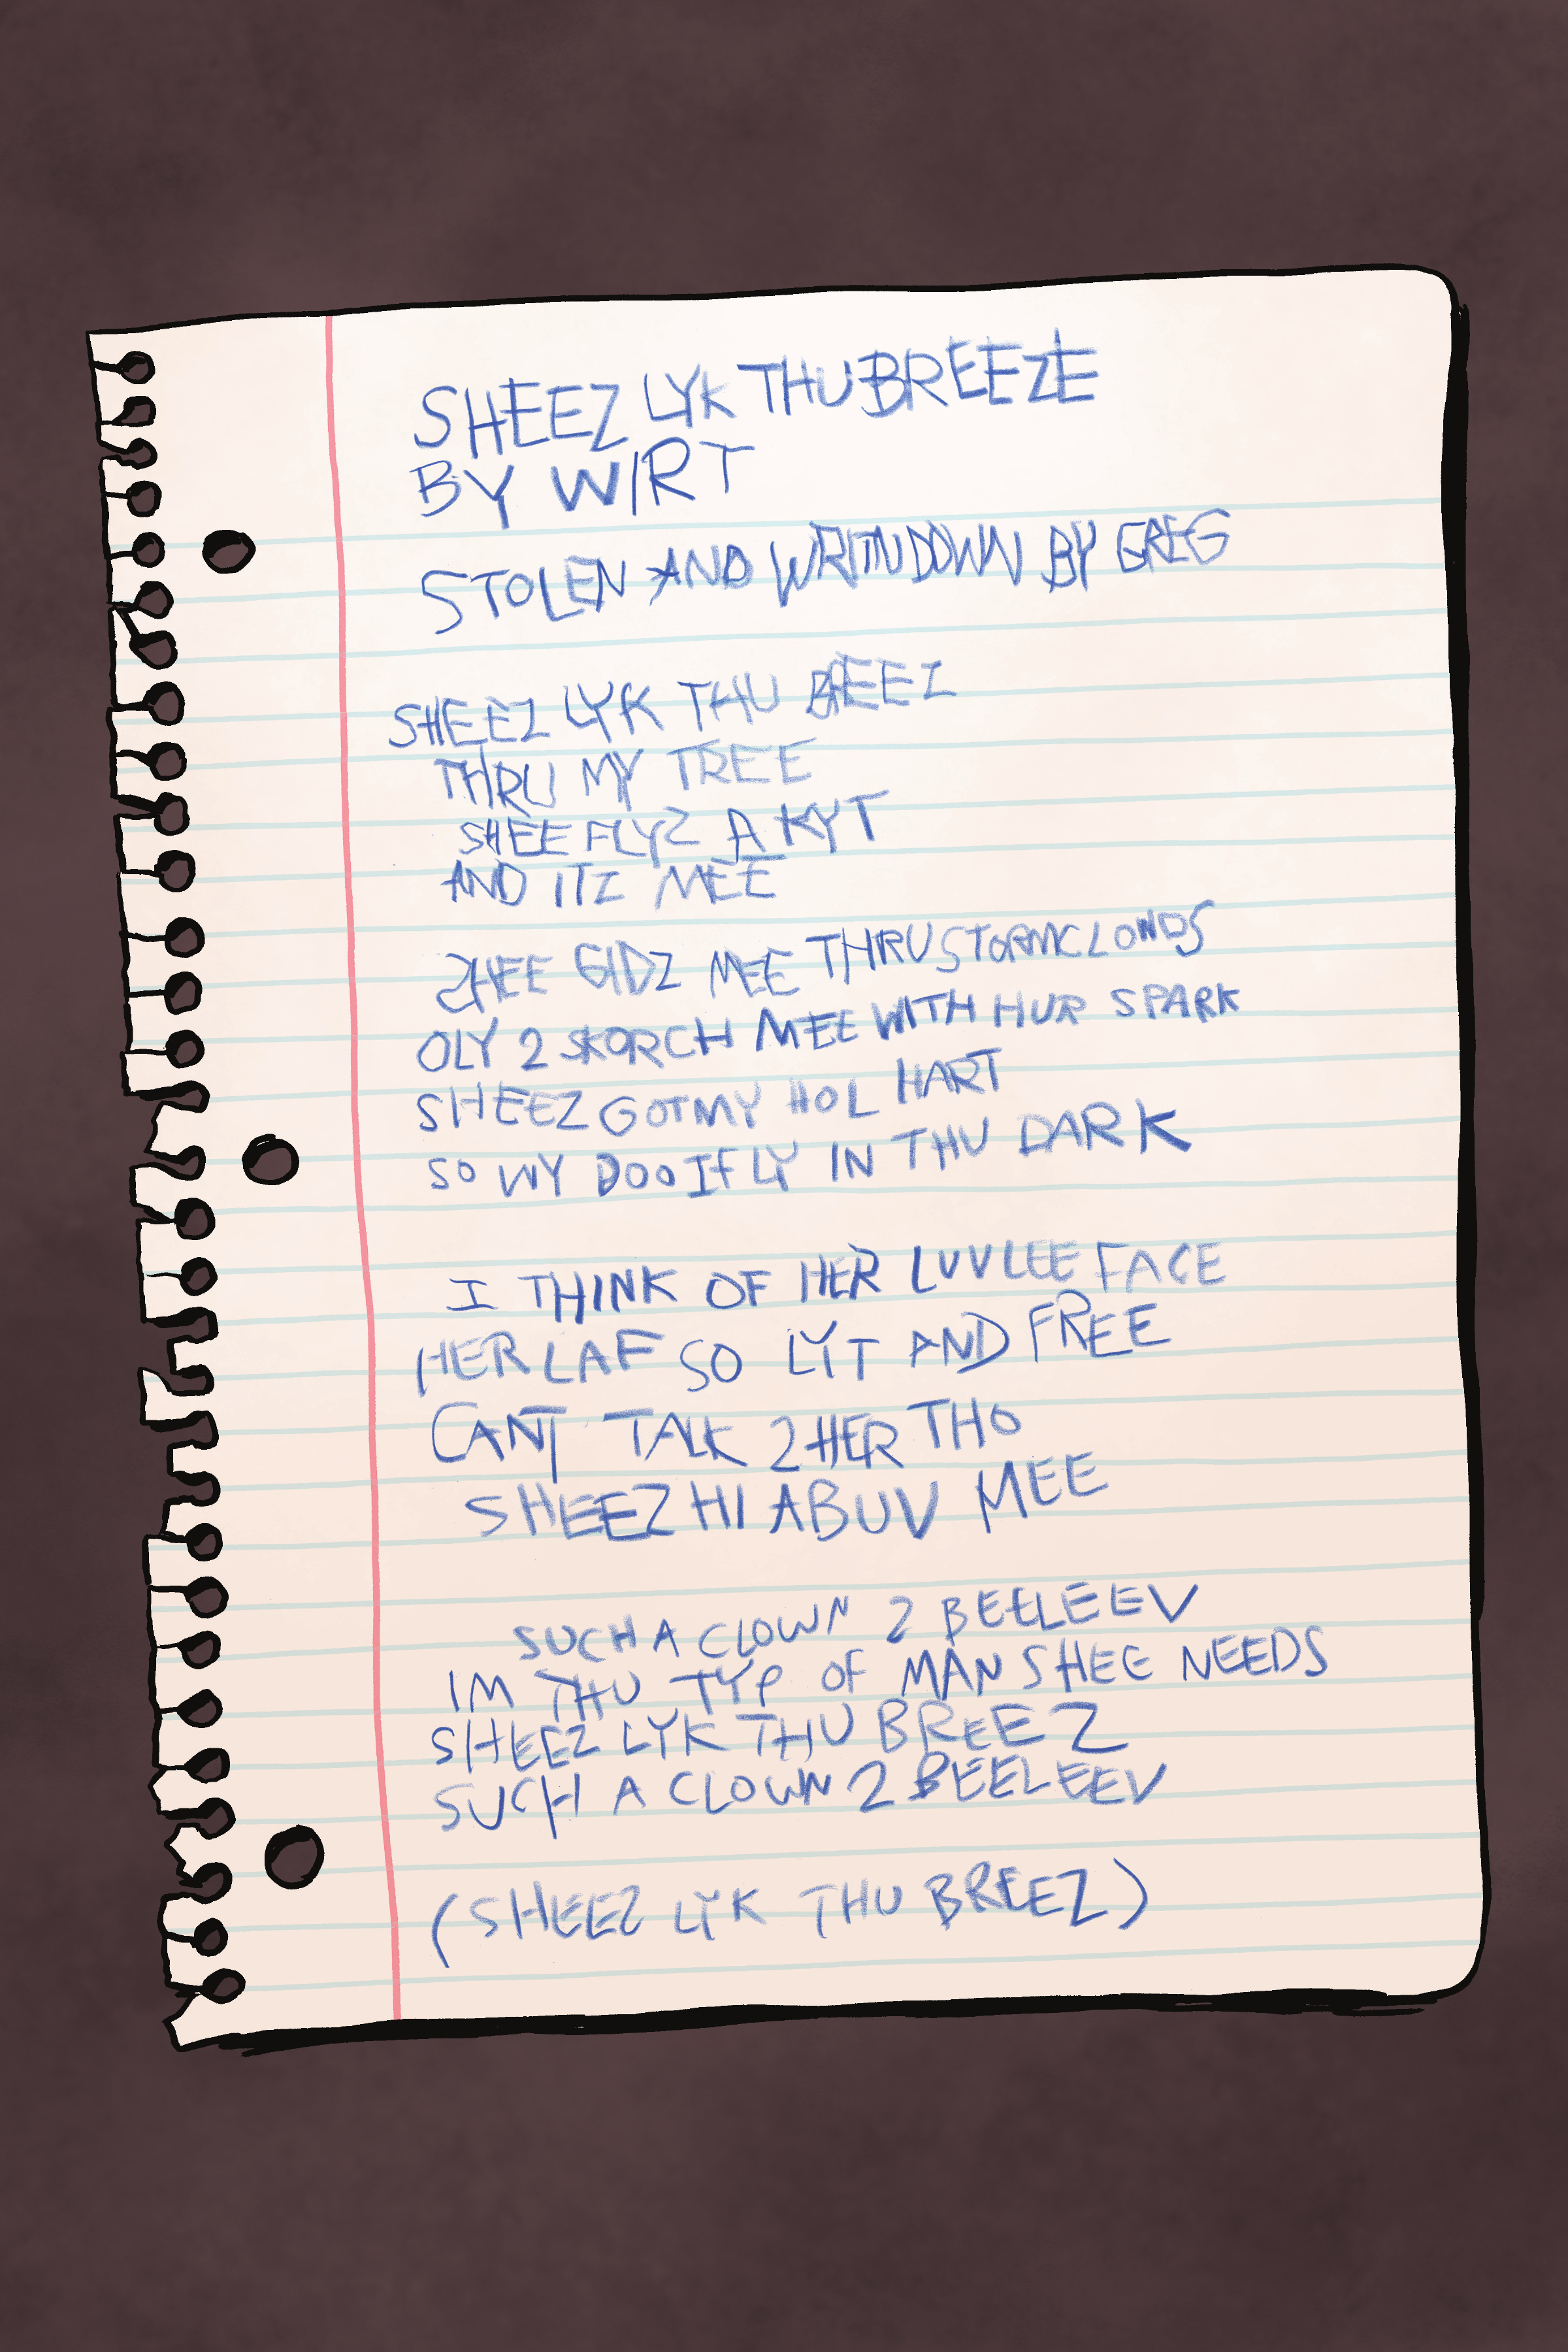 SHEEZ LYK THU BREEZE
BY WIRT
STOLEN AND WRITN DOWN BY GREG
SHEEZ LYK THU BREEZ
THRU MY TREE
SHEE FLYZ A KYT
AND ITZ MEE
SHEE GIDZ MEE THRU STORMCLOWDS
OLY 2 SKORCH MEE WITH HUR SPARK
SHEEZ GOT MY HOL HART
SO WY DOO I FLY IN THU DARK
I THINK OF HER LUVLEE FACE
HER LAF SO LYT AND FREE
CANT TALK 2 HER THO
SHEEZ HI ABUV MEE
SUCH A CLOWN 2 BEELEEV
IM THU TYP OF MAN SHEE NEEDS
SHEEZ LYK THU BREEZ
SUCH A CLOWN 2 BEELEEV
(SHEEZ LYK THU BREEZ)